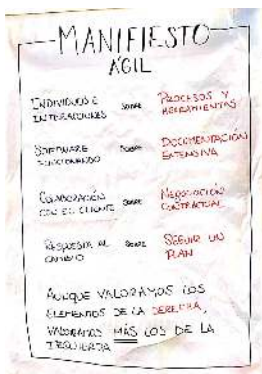 MANIFIESTO
ÁGIL
INDIVIDUOS E INTERACCIONES SOBRE PROCESOS Y HERRAMIENTAS
SOFTWARE FUNCIONANDO SOBRE DOCUMENTACIÓN EXTENSIVA
COLABORACIÓN CON EL CLIENTE SOBRE NEGOCIACIÓN CONTRACTUAL
RESPUESTA AL CAMBIO SOBRE SEGUIR UN PLAN
AUNQUE VALORAMOS LOS
ELEMENTOS DE LA DERECHA,
VALORAMOS MÁS LOS DE LA
IZQUIERDA